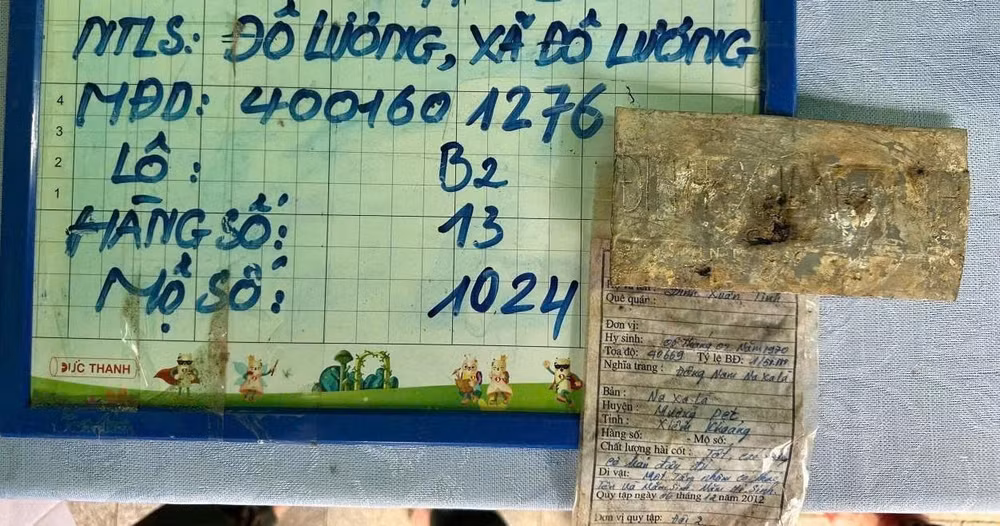 NTLS: ĐÔ LƯƠNG, XÃ ĐÔ LƯƠNG
MĐD: 400160 1276
LÔ: B2
HÀNG SỐ: 13
MỘ SỐ: 1024
4
3
2
1
ĐỨC THANH
Xuân
Quê quán:
Đơn vị:
Hy sinh: tháng năm 1970
Toạ độ: 40669 Tỷ lệ BĐ:
Nghĩa trang: Đông Nam Na Xa La
Bản: Na Xa La
Huyện: Mường Pẹt
Tỉnh: Xiêm Khoảng
Hàng số: - Mộ số:
Chất lượng hài cốt: Tốt
Di vật: Một
Quy tập ngày tháng 12 năm 2012
Đơn vị quy tập: Đội 2